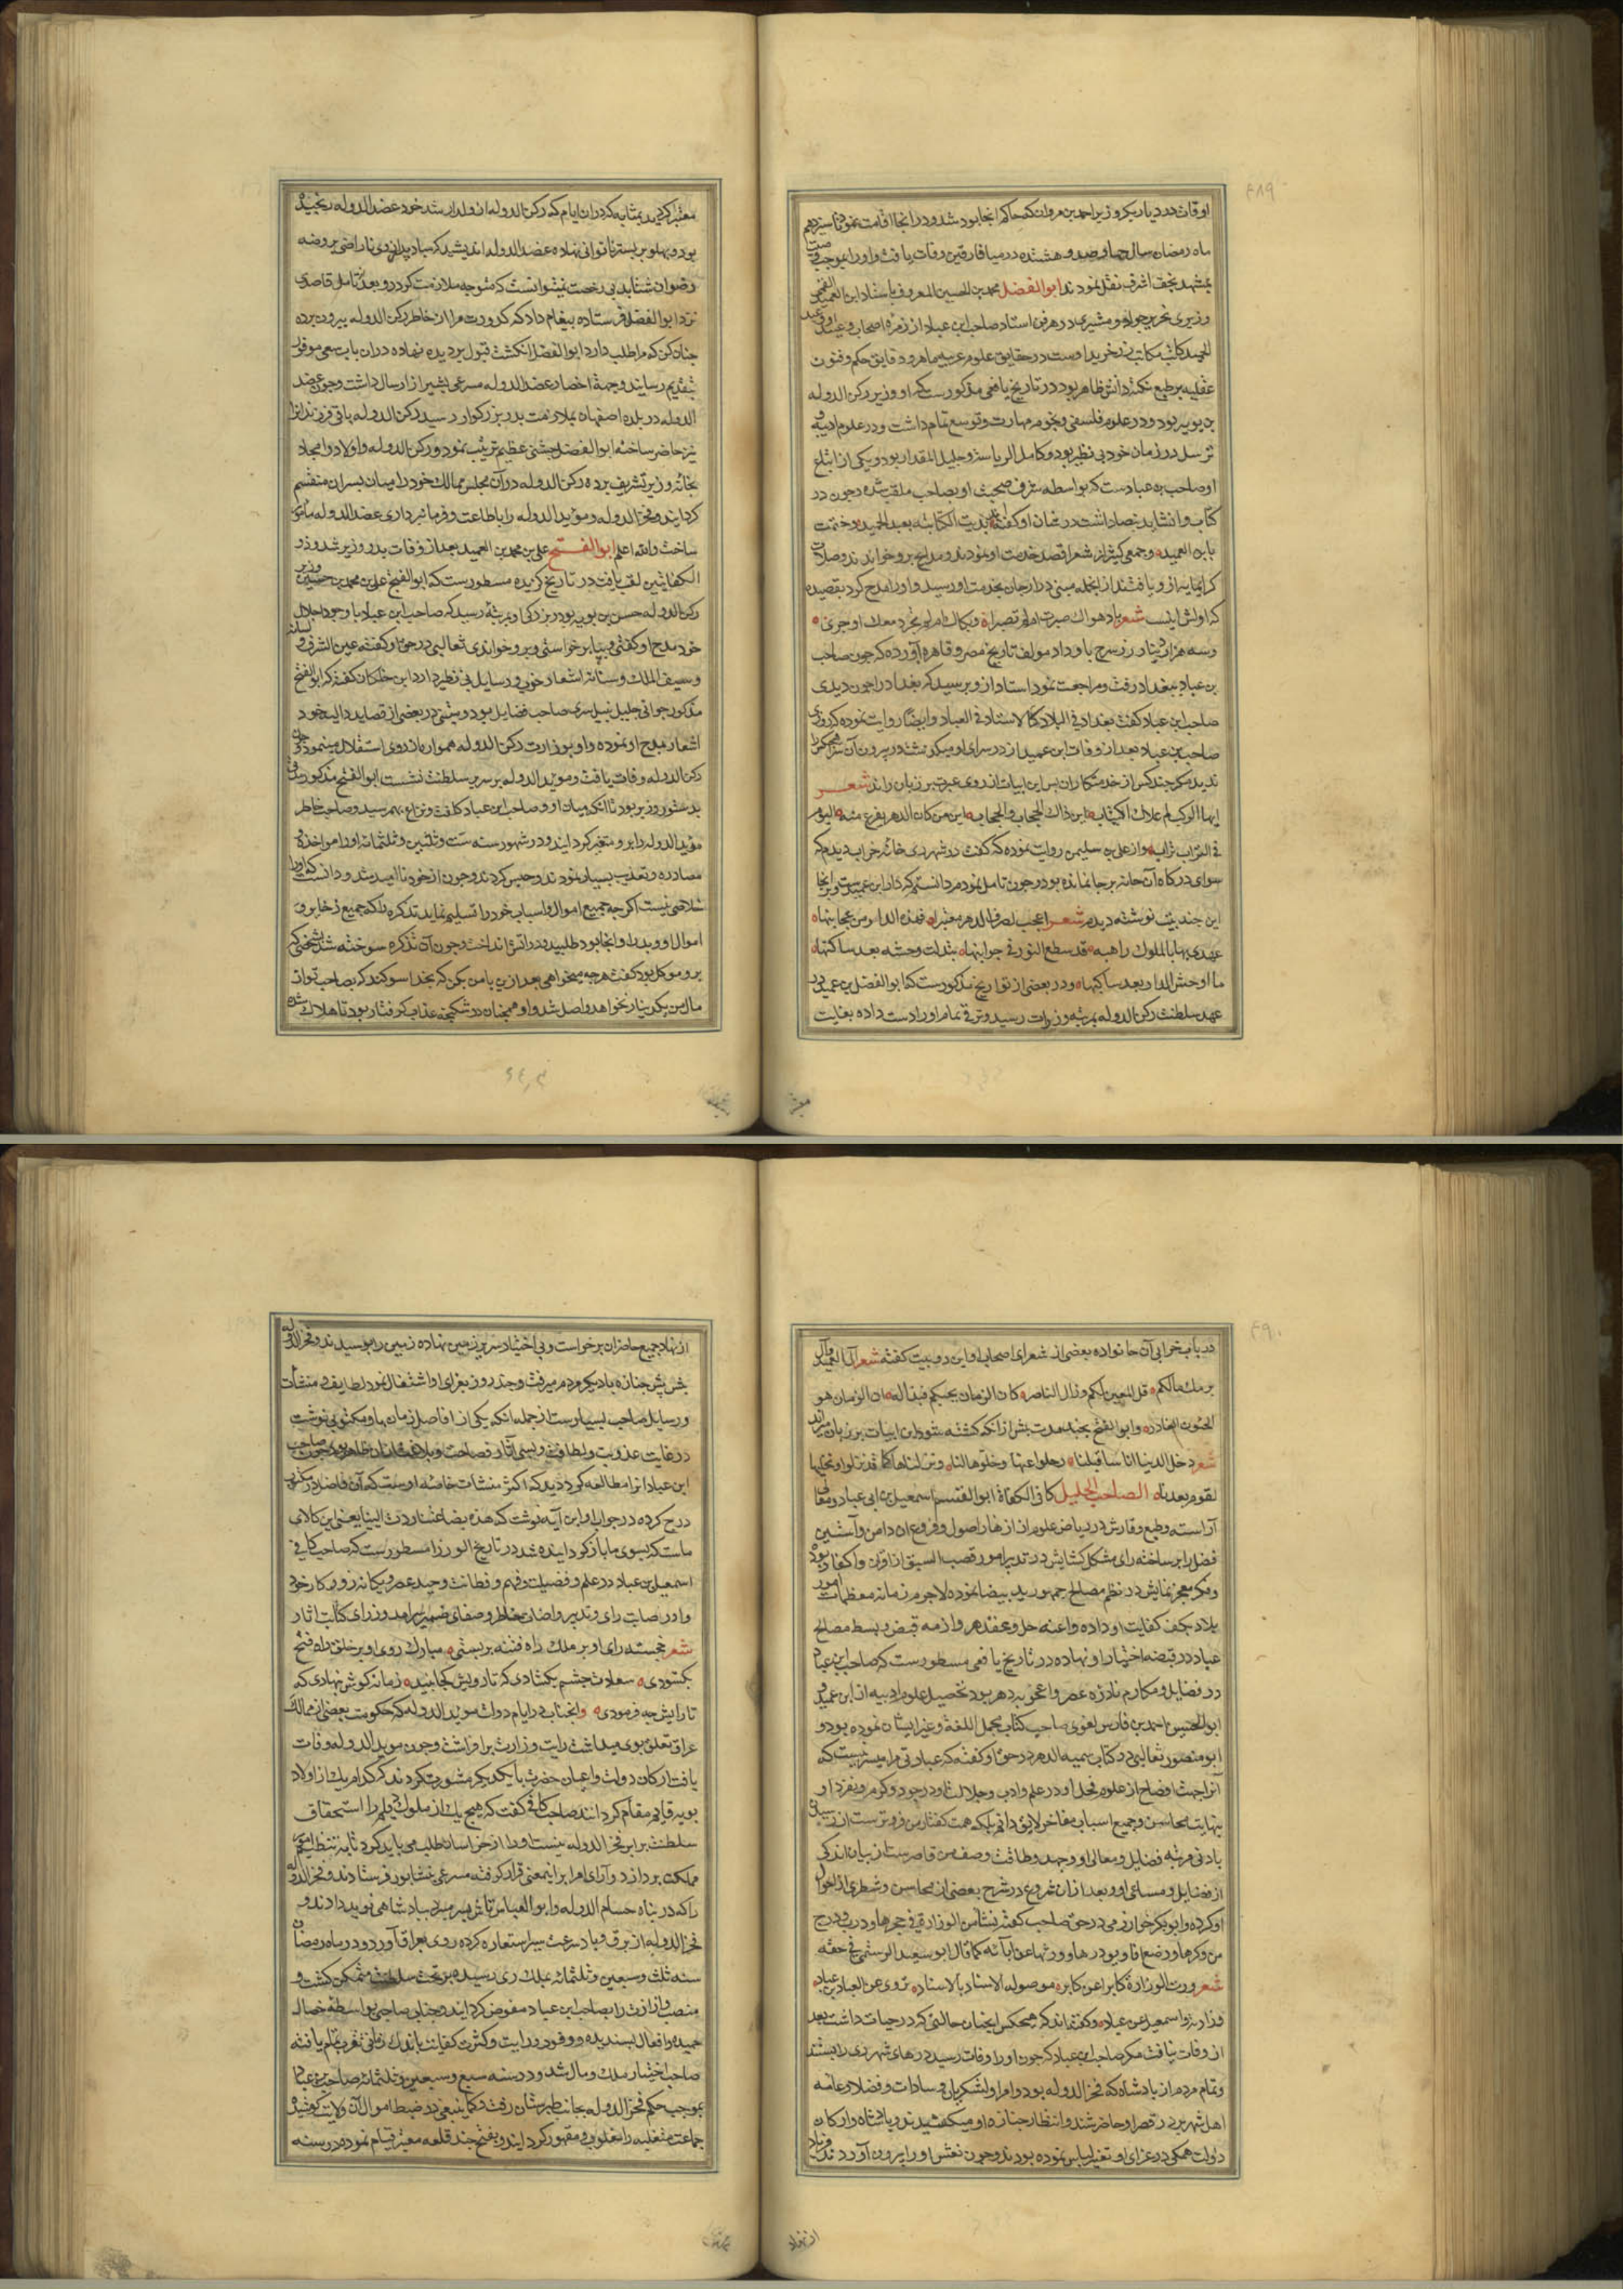 ٤٨٩
اوقات در دیار بکر وزیر احمد بن مروان که حاکم انجا بود شد و در انجا اقامت نمود تا سیزدهم
ماه رمضان سال چهارصد و هشتده در میافارقین وفات یافت و او را بموجب وصیت
بمشهد نجف اشرف نقل نمودند ابو الفضل محمد بن الحسین المعروف باستاد ابن العمید القمی
وزیری نحریر جواد و مشیری در هر فن استاد صاحب ابن عباد از زمره اصحاب و
الحمید کاتب مکاتب زرخرید اوست در حقایق علوم عربیه ماهر و دقایق حکم و فنون
عقلیه بر طبع نکته دانش ظاهر بود در تاریخ یافعی مذکورست که او وزیر رکن الدوله
بن بویه بود و در علوم فلسفی و نجوم مهارت و توسع تمام داشت و در علوم ادبیه و
ترسل در زمان خود بی نظیر بود و کامل الریاسة و جلیل المقدار بود و یکی از اتباع
او صاحب بن عبادست که بواسطه شرف صحبت او بصاحب ملقب شده و چون در
کتاب و انشا ید بیضا داشت در شان او گفته اند بدیت الکتابة بعبد الحمید و ختمت
بابن العمید و جمعی کثیر از شعرا قصد خدمت او نمودند و مدایح برو خواندند و صلات
کرانمایه ازو یافتند از انجمله متنبی در ارجان بخدمت او رسید و او را مدح کرد بقصیده
که اولش اینست شعر باد هواك صبرت ام لم تصبرا و بكاك ان لم يجر دمعك او جرى
و سه هزار دینار زر سرخ باو داد مولف تاریخ مصر و قاهره آورده که چون صاحب
بن عباد ببغداد رفت و مراجعت نمود استاد ازو پرسید که بغداد را چون دیدی
صاحب ابن عباد گفت بغداد فی البلاد کالاستاد فی العباد و ایضا روایت نموده که روزی
صاحب بن عباد بعد از وفات ابن عمید از در سرای او میگذشت در بیرون آن سرا هیچکس را
ندید مگر چند کس از خدمتکاران پس این ابیات از روی عبرت بر زبان راند شعر
ايها الركب لم علاك اكتئاب اين ذاك الحجاب والحجاب اين من كان الدهر يفزع منه اليوم
في التراب تراب و از علی بن سلیمن روایت نموده که گفت در شهر ری خانه خراب دیدم که
سوای درگاه آن خانه برجا نمانده بود و چون تامل نمودم دانستم که دار ابن عمیدست و بر انجا
این چند بیت نوشته دیدم شعر اعجب لصرف الدهر معتبرا فهذه الدار من عجايبها
عهدي بها بالملوك راهبه قد سطع النور في جوانبها بتدلت وحشه بعد ساكنها
ما اوحش الدار بعد ساكنها و در بعضی از تواریخ مذکورست که ابو الفضل بن عمید در
عهد سلطنت رکن الدوله بمرتبه وزارت رسید و ترقی تمام او را دست داده بغایت
معتبر کردید بمثابه که در ان ایام که رکن الدوله از ولد ارشد خود عضد الدوله رنجیده
بود و پهلو بر بستر ناتوانی نهاده عضد الدوله اندیشید که مبادا پدر از وی ناراضی بروضه
رضوان شتابد بی رخصت نیتوانست که متوجه ملازمت گردد و بعد از تامل قاصدی
نزد ابو الفضل فرستاده پیغام داد که کدورت مرا از خاطر رکن الدوله بیرون برده
چنان کن که مرا طلب دارد ابو الفضل انگشت قبول بر دیده نهاده در ان باب سعی موفور
بتقدیم رسانید و جهة احضار عضد الدوله مسرعی بشیراز ارسال داشت و چون عضد
الدوله در بلده اصفهان بملازمت پدر بزرگوار رسید رکن الدوله باقی فرزندانرا
نیز حاضر ساخته ابو الفضل جشنی عظیم ترتیب نمود و رکن الدوله و اولاد و امجاد
بخانه وزیر تشریف برده رکن الدوله در آن مجلس ممالک خود را میان پسران منقسم
گردانید و فخر الدوله و موید الدوله را باطاعت و فرمانبرداری عضد الدوله مامور
ساخت والله اعلم ابو الفـتـح علی بن محمد بن العمید بعد از وفات پدر وزیر شد و ذو
الکفایتین لقب یافت در تاریخ گزیده مسطورست که ابو الفتح علی بن محمد بن حسین وزیر
رکن الدوله حسن بن بویه بود و بزرگی او بمرتبه رسید که صاحب ابن عباد با وجود جلال
خود مدح او گفتی و بپا برخواستی و برو خواندی ثعالبی در حق او گفته عین الشرق و لسانه
و سیف الملک و سنانه اشعار خوب و رسایل بی نظیر دارد ابن خلکان گفته که ابو الفتح
مذکور جوانی جلیل نبیل سری صاحب فضایل بود و متنبی در بعضی از قصاید دالیه خود
اشعار مدح او نموده و او بوزارت رکن الدوله هموار باز روی استقلال مینمود و چون
رکن الدوله وفات یافت و موید الدوله بر سریر سلطنت نشست ابو الفتح مذکور
بدستور وزیر بود تا آنکه میان او و صاحب ابن عباد کلفت و نزاع بهم رسید و صاحب خاطر
موید الدوله را برو متغیر گردانید و در شهور سنه ست و ثلثین و ثلثمائه او را مواخذه و
مصادره و تعذیب بسیار نمودند و حبس کردند و چون از خود ناامید شد و دانست که او را
خلاصی نیست اگرچه جمیع اموال و اسباب خود را تسلیم نماید تذکره را که جمیع ذخایر و
اموال او و پدر او انجا بود طلبید و در آتش انداخت و چون آن تذکره سوخته شد بشخصی که
برو موکل بود گفت هرچه میخواهی بعد ازین با من بکن که بخدا سوگند که بصاحب تو از
مال من یک دینار نخواهد واصل شد و او همچنان در شکنجه عذاب گرفتار بود تا هلاک شد
معتبر
٤٩٠
در باب خرابی آن خانواده بعضی از شعرای اصحاب او این دو بیت گفته شعر آل العميد وآل
برمك مالكم قل المعين لكم وذل الناصر كان الزمان يحبكم فبداله ان الزمان هو
الخئون الغادر و ابو الفتح بچند مدت پیش از آنکه کشته شود این ابیات بر زبان میراند
شعر دخل الدنيا اناس قبلنا رحلوا عنها وخلوها لنا ونزلناها كما قد نزلوا ونخليها
لقوم بعدنا الصاحب الجلیل کافی الکفاة ابو القسم اسمعیل بن ابی عباد
آراسته و طبع وقارش در ریاض علوم از ازهار اصول و فروع ان دامن و آستین
فضل را پر ساخته رای مشکل گشایش در تدبیر امور قصب السبق از اقران و اکفا ربوده
و فکر معجز نمایش در نظم مصالح جمهور ید بیضا نموده لاجرم زمانه معظمات امور
بلاد بکف کفایت او داده و اعنه حل و عقد دهر و ازمه قبض و بسط مصالح
عباد در قبضه اختیار او نهاده در تاریخ یافعی مسطورست که صاحب ابن عباد
در فضایل و مکارم نادره عصر و اعجوبه دهر بود تحصیل علوم ادبیه از ابن عمید و
ابو الحسین احمد بن فارس لغوی صاحب کتاب مجمل اللغة و غیر ایشان نموده بود و
ابو منصور ثعالبی در کتاب یتیمه الدهر در حق او گفته که عبارتی مرا میسر نیست که
آنرا جهت افصاح از علو محل او در علم و ادب و جلالت او در جود و کرم و تفرد او
بنهایت محاسن و جمیع اسباب مفاخر لایق دانم بلکه همت گفتار من فروترست از رسیدن
بادنی مرتبه فضایل و معالی او و جهد و طاقت وصف من قاصرست از بیان اندکی
از فضایل و مساعی او و بعد ازان شروع در شرح بعضی از محاسن و شطری از احوال
او کرده و ابوبکر خوارزمی در حق صاحب گفته نشأ من الوزارة في حجرها ودب ودرج
من وكرها ورضع افاويق درها وورثها عن آبائه كما قال ابو سعيد الرستمي في حقه
شعر ورث الوزارة كابرا عن كابر موصوله الاسناد بالاسناد تروى عن العباس عباد
وزارته واسمعيل عن عباد و گفته اند که هیچکس ایچنان حالتی که در حیات داشت بعد
از وفات نیافت مگر صاحب ابن عباد که چون او را وفات رسید درهای شهر ری را بستند
و تمام مردم از پادشاه که فخر الدوله بود و امرا و لشکریان و سادات و فضلا و عامه
اهل شهر بر در قصر او حاضر شدند و انتظار جنازه او میکشیدند و پادشاه و ارکان
دولت همگی در عزای او تغیر لباس نموده بودند و چون نعش او را بیرون آوردند فریاد
از نهاد
از نهاد جمیع حاضران برخواست و بی اختیار سر بر زمین نهاده زمین را بوسیدند و فخر الدوله
پیش پیش جنازه با دیگر مردم میرفت و چند روز بعزای او اشتغال نمود لطایف و منشآت
و رسایل صاحب بسیارست از جمله آنکه یکی از افاضل زمان باو مکتوبی نوشت
در غایت عذوبت و لطافت و بسی آثار فصاحت و بلاغت از ان ظاهر بود چون صاحب
ابن عباد آنرا مطالعه کرد دید که اکثر منشآت خاصه اوست که آن فاضل در مکتوب
درج کرده در جواب او این آیه نوشت که هذه بضاعتنا ردت الینا یعنی این کالای
ماست که بسوی ما باز گردانیده شد در تاریخ الوزرا مسطورست که صاحب کافی
اسمعیل بن عباد در علم و فضیلت و فهم و فطانت وحید عصر و یگانه روزگار خود
و او در اصابت رای و تدبیر و اضائت خاطر و صفای ضمیر سرآمد وزرای کفایت آثار
شعر خجسته رای او بر ملک راه فتنه بربستی مبارک روی او بر خلق راه فتح
بکشودی سعادت چشم بگشادی که تا رویش کجا بیند زمانه گوش بنهادی که
تا رایش چه فرمودی و انجناب در ایام دولت موید الدوله که حکومت بعضی از ممالک
عراق تعلق بوی میداشت رایت وزارت برافراشت و چون موید الدوله وفات
یافت ارکان دولت و اعیان حضرت با یکدیگر مشورت کردند که کدام یک از اولاد
بویه قایم مقام گردانند صاحب کافی گفت که هیچ یک از ملوک دیلم را استحقاق
سلطنت برابر فخر الدوله نیست او را از خراسان طلب می باید کرد تا بتنظیم امور
مملکت پردازد و آرای امرا بر اینمعنی قرار گرفته مسرعی بنشابور فرستادند و فخر الدوله
را که در پناه حسام الدوله و ابو العباس تاش بسر میبرد بپادشاهی نوید دادند و
فخر الدوله از برق و باد سرعت سیر استعاره کرده روی بعراق آورد و در ماه رمضان
سنه ثلث و سبعین و ثلثمائه بملک ری رسیده بر تخت سلطنت متمکن گشت و
منصب وزارت را بصاحب ابن عباد مفوض گردانید و جناب صاحبی بواسطه خصال
حمیده و افعال پسندیده و وفور درایت و کثرت کفایت باندک زمانی تقرب تمام یافته
صاحب اختیار ملک و مال شد و در سنه سبع و سبعین و ثلثمائه صاحب بن عباد
بموجب حکم فخر الدوله بجانب طبرستان رفت و کما ینبغی در ضبط اموال آن ولایت کوشیده
جماعت متغلبه را مغلوب و مقهور گردانید و بفتح چند قلعه معتبر قیام نموده در سنه